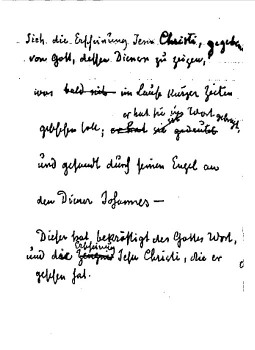 Sieh, die Erscheinung Jesu Christi, gegeben
von Gott, dessen Dienern zu zeigen,
was bald sich in Laufe kurzer Zeiten
er hat sie ins Wort gebracht,
geschehen soll; er hat sie gedeutet
und gesandt durch seinen Engel an
den Diener Johannes —
Dieser hat bekräftigt des Gottes Wort,
Erscheinung
und die Zeugnis Jesu Christi, die er
gesehen hat.